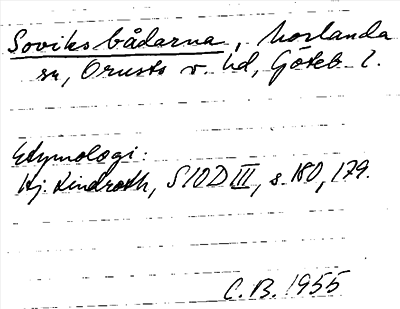 Soviksbådarna, Morlanda
sn, Orusts v. hd, Göteb. l.
Etymologi:
Hj. Lindroth, SIOD III, s. 180, 179.
C. B. 1955